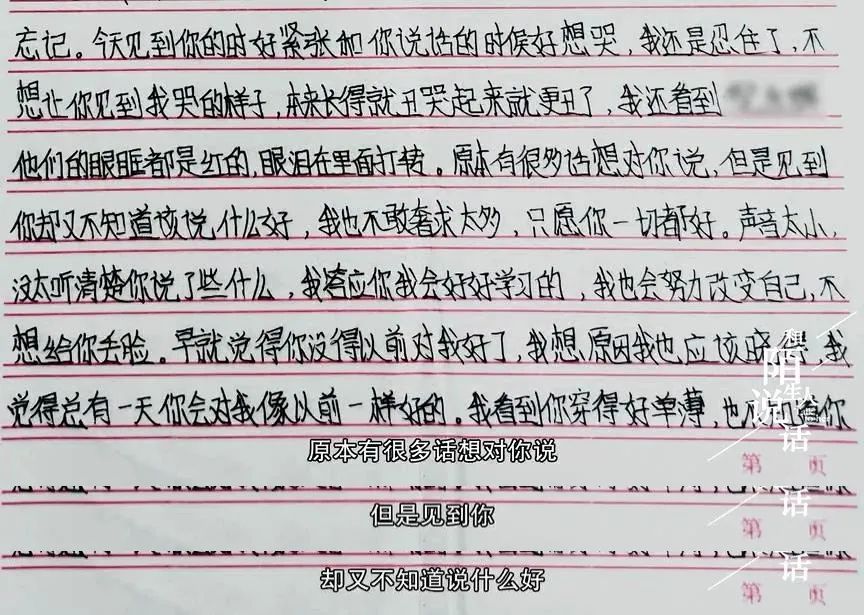 忘记。今天见到你的时好紧张和你说话的时候好想哭,我还是忍住了,不
想让你见到我哭的样子,本来长得就丑哭起来就更丑了,我还看到
他们的眼眶都是红的,眼泪在里面打转。原本有很多话想对你说,但是见到
你却又不知道该说什么好,我也不敢奢求太多,只愿你一切都好。声音太小,
没太听清楚你说了些什么,我答应你我会好好学习的,我也会努力改变自己,不
想给你丢脸。早就觉得你没得以前对我好了,我想原因我也应该晓得,我
觉得总有一天你会对我像以前一样好的。我看到你穿得好单薄,也
你
原本有很多话想对你说
第 页
但是见到你
第 页
却又不知道说什么好
第 页
和陌生人说话